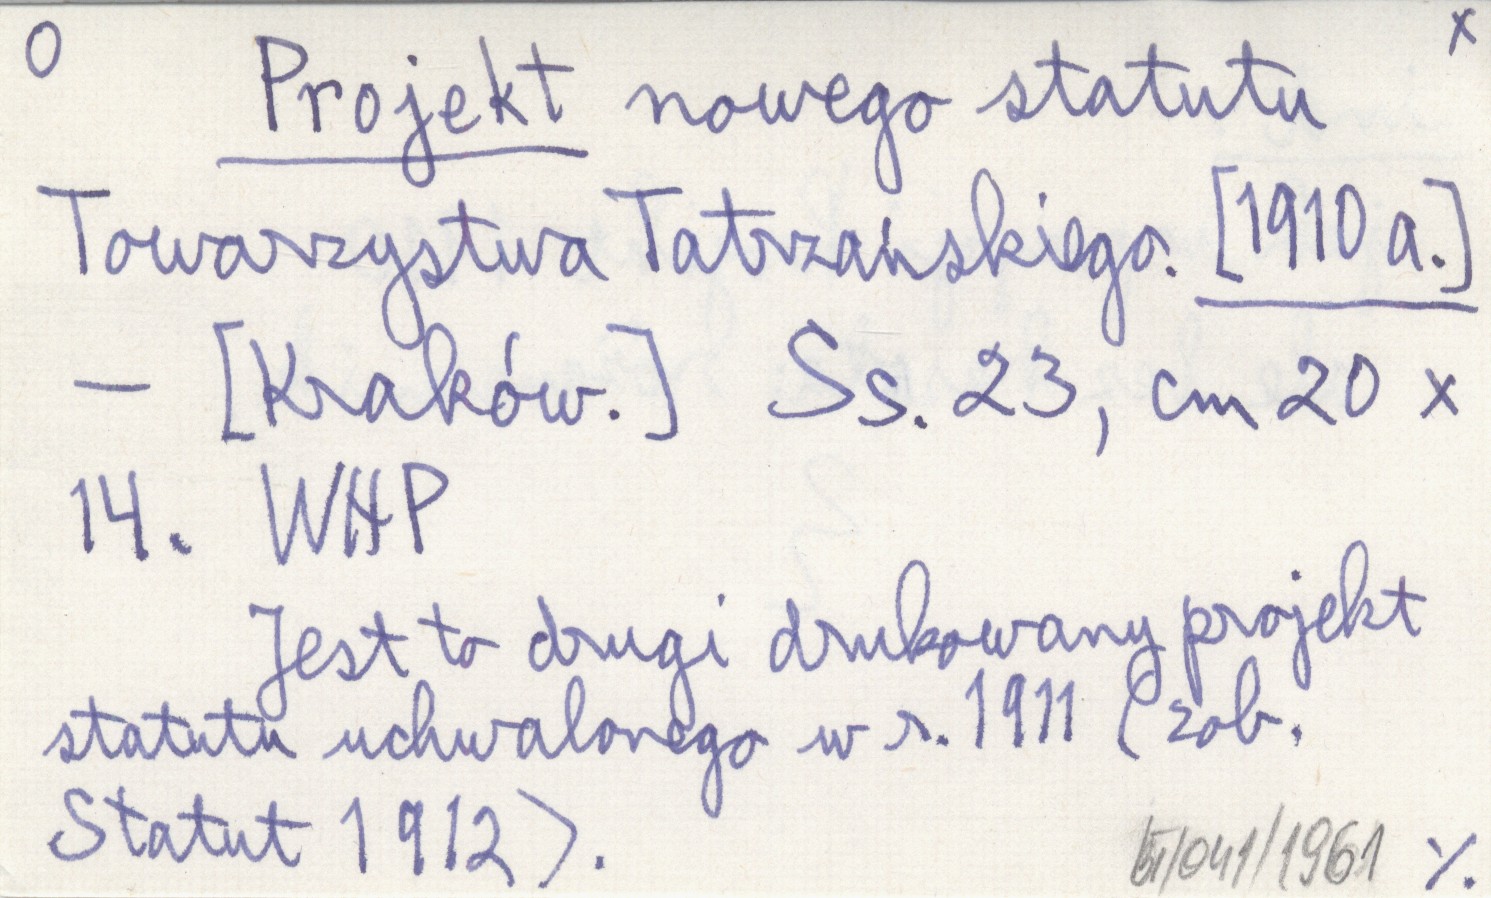 O x
Projekt nowego statutu
Towarzystwa Tatrzańskiego. [1910 a.]
— [Kraków.] Ss. 23, cm 20 x
14. WHP
Jest to drugi drukowany projekt
statutu uchwalonego w r. 1911 (zob.
Statut 1912).
/041/1961 ./.